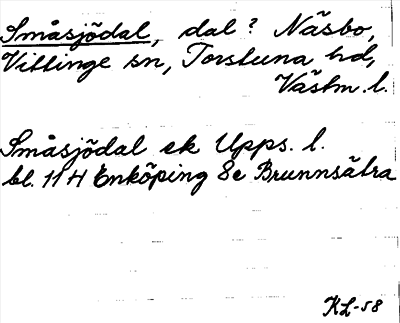 Småsjödal, dal? Näsbo,
Vittinge sn, Torstuna hd,
Västm. l.
Småsjödal ek Upps. l.
bl. 11 H Enköping 8e Brunnsätra
KL-58